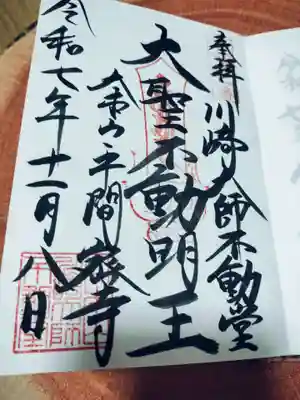 奉拝 川崎大師不動堂
大聖不動明王
大本山平間寺
令和七年十一月八日